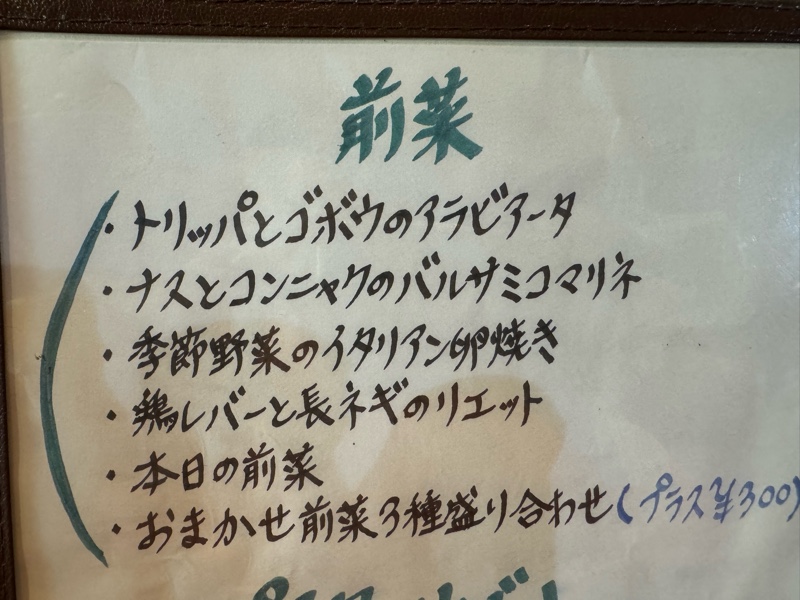 前菜
・トリッパとゴボウのアラビアータ
・ナスとコンニャクのバルサミコマリネ
・季節野菜のイタリアン卵焼き
・鶏レバーと長ネギのリエット
・本日の前菜
・おまかせ前菜3種盛り合わせ(プラス¥300)